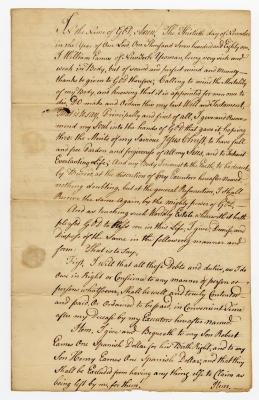 In the Name of God, Amen. The Thirtieth day of November
in the Year of Our Lord One Thousand Seven hundred and Eighty one,
I William Eames of Newtack Yeoman, being very sick and
weak in Body, but of sound and perfect mind and Memory
thanks to given to God therefore; Calling to mind the Mortality
of my Body, and knowing that it is appointed for men once to
die, DO make and Ordain this my last Will and Testament,
that is to say, Principally and first of all, I give and Recom-
mend my Soul into the hands of God that gave it, hoping thro'
the Merits of my Saviour Jesus Christ to have full
and free Pardon and forgiveness of all my Sins, and to Inherit
Everlasting Life; And my Body I commit to the Earth to be decently
buried at the discretion of my Executor hereafter named
nothing doubting, but at the general Resurrection I shall
Receive the Same Again by the mighty power of God.
And as touching such Worldly Estate wherewith it hath
pleased God to bless me in this Life, I give Demise and
dispose of the Same in the following manner and
form That is to Say,
First, I will that all those Debts and duties, as I do
owe in Right or Consience to any manner of person or
persons whatsoever, shall be well and truely Contented
and paid, or Ordained to be paid, in Convenient time
after my Decease by my Executor hereafter named
Item, I give and Bequeath to my Son Robert
Eames One Spanish Dollar for his Birth Right, and to my
Son Henry Eames One Spanish Dollar, and that they
Shall be Excluded from having any thing else to Claim as
being left by me for them,
Item